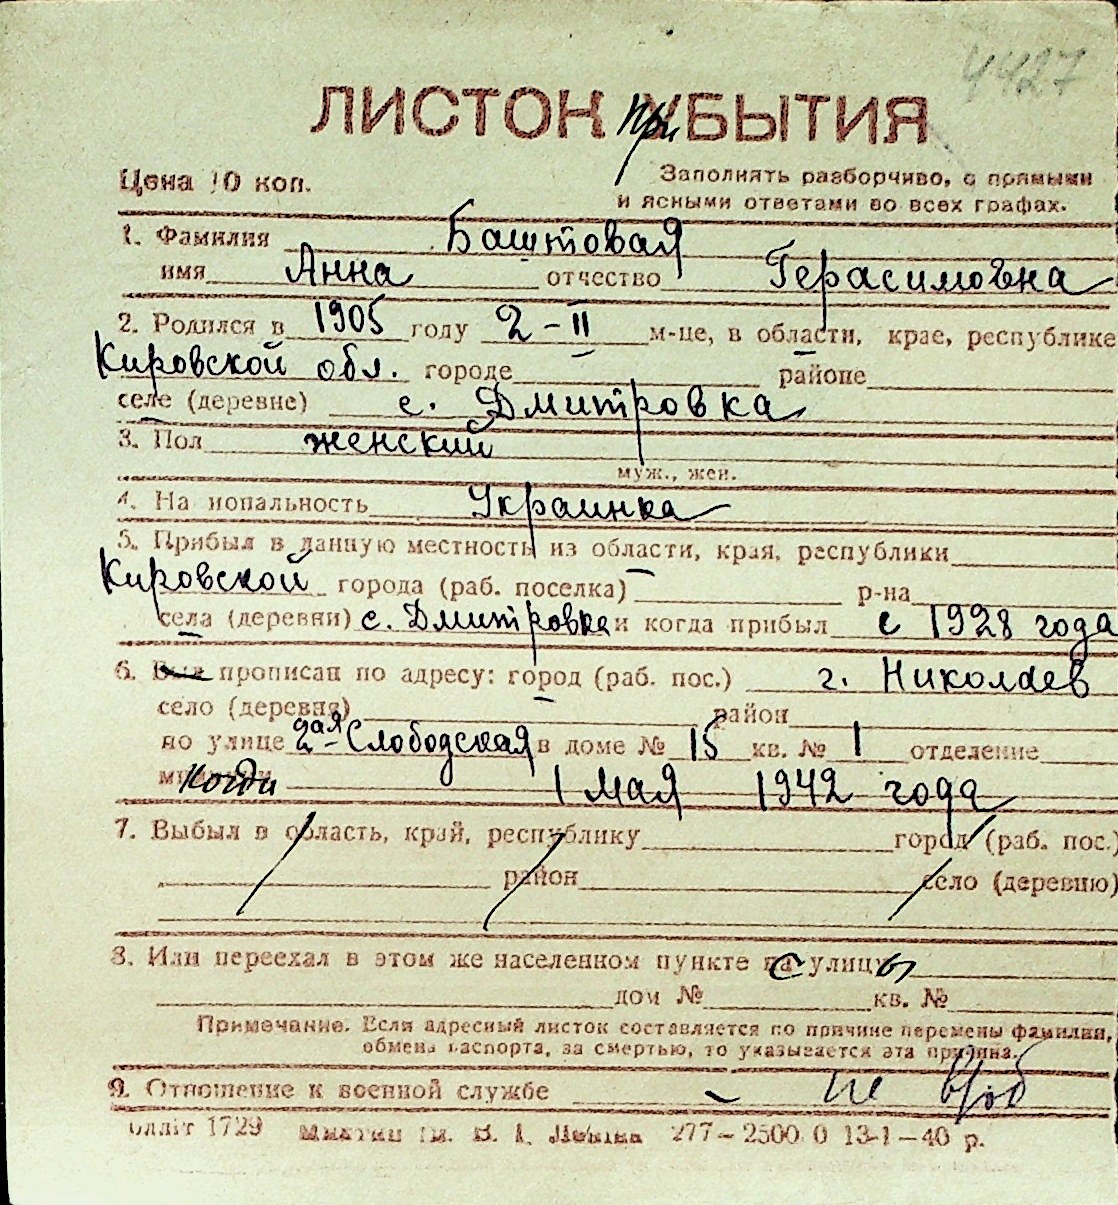 4427
ЛИСТОК При УБЫТИЯ
Цена 10 коп.
Заполнять разборчиво, с прямыми
и ясными ответами во всех графах.
1. Фамилия Баштовая
имя Анна отчество Герасимовна
2. Родился в 1905 году 2-II м-це, в области, крае, республике
Кировской обл. городе районе
селе (деревне) с. Дмитровка
3. Пол женский
муж., жен.
4. Национальность Украинка
5. Прибыл в данную местность из области, края, республики
Кировской города (раб. поселка) р-на
села (деревни) с. Дмитровка и когда прибыл с 1928 года
6. Был прописан по адресу: город (раб. пос.) г. Николаев
село (деревня) район
по улице 2ая-Слободская в доме № 15 кв. № 1 отделение
милиции когда 1 мая 1942 года
7. Выбыл в область, край, республику город (раб. пос.)
район село (деревню)
8. Или переехал в этом же населенном пункте с улицы
дом № кв. №
Примечание. Если адресный листок составляется по причине перемены фамилии,
обмена паспорта, за смертью, то указывается эта причина.
9. Отношение к военной службе - не
1729 277-2500 0 13-1-40 р.